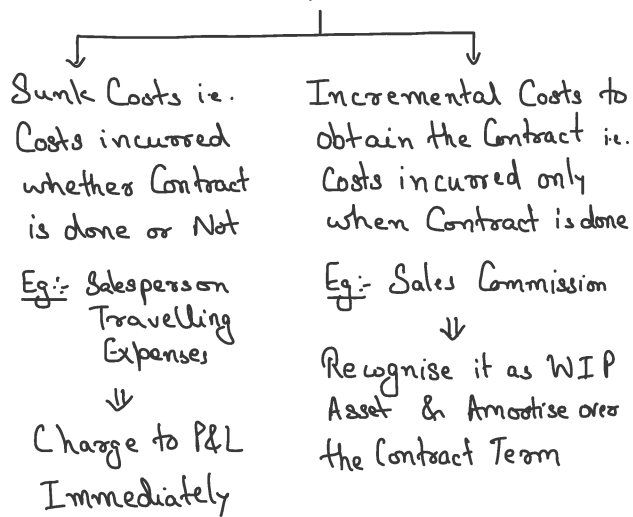 Sunk Costs i.e.
Costs incurred
whether Contract
is done or Not
Eg:- Salesperson
Travelling
Expenses
⇓
Charge to P&L
Immediately
Incremental Costs to
obtain the Contract i.e.
Costs incurred only
when Contract is done
Eg:- Sales Commission
⇓
Recognise it as WIP
Asset & Amortise over
the Contract Term